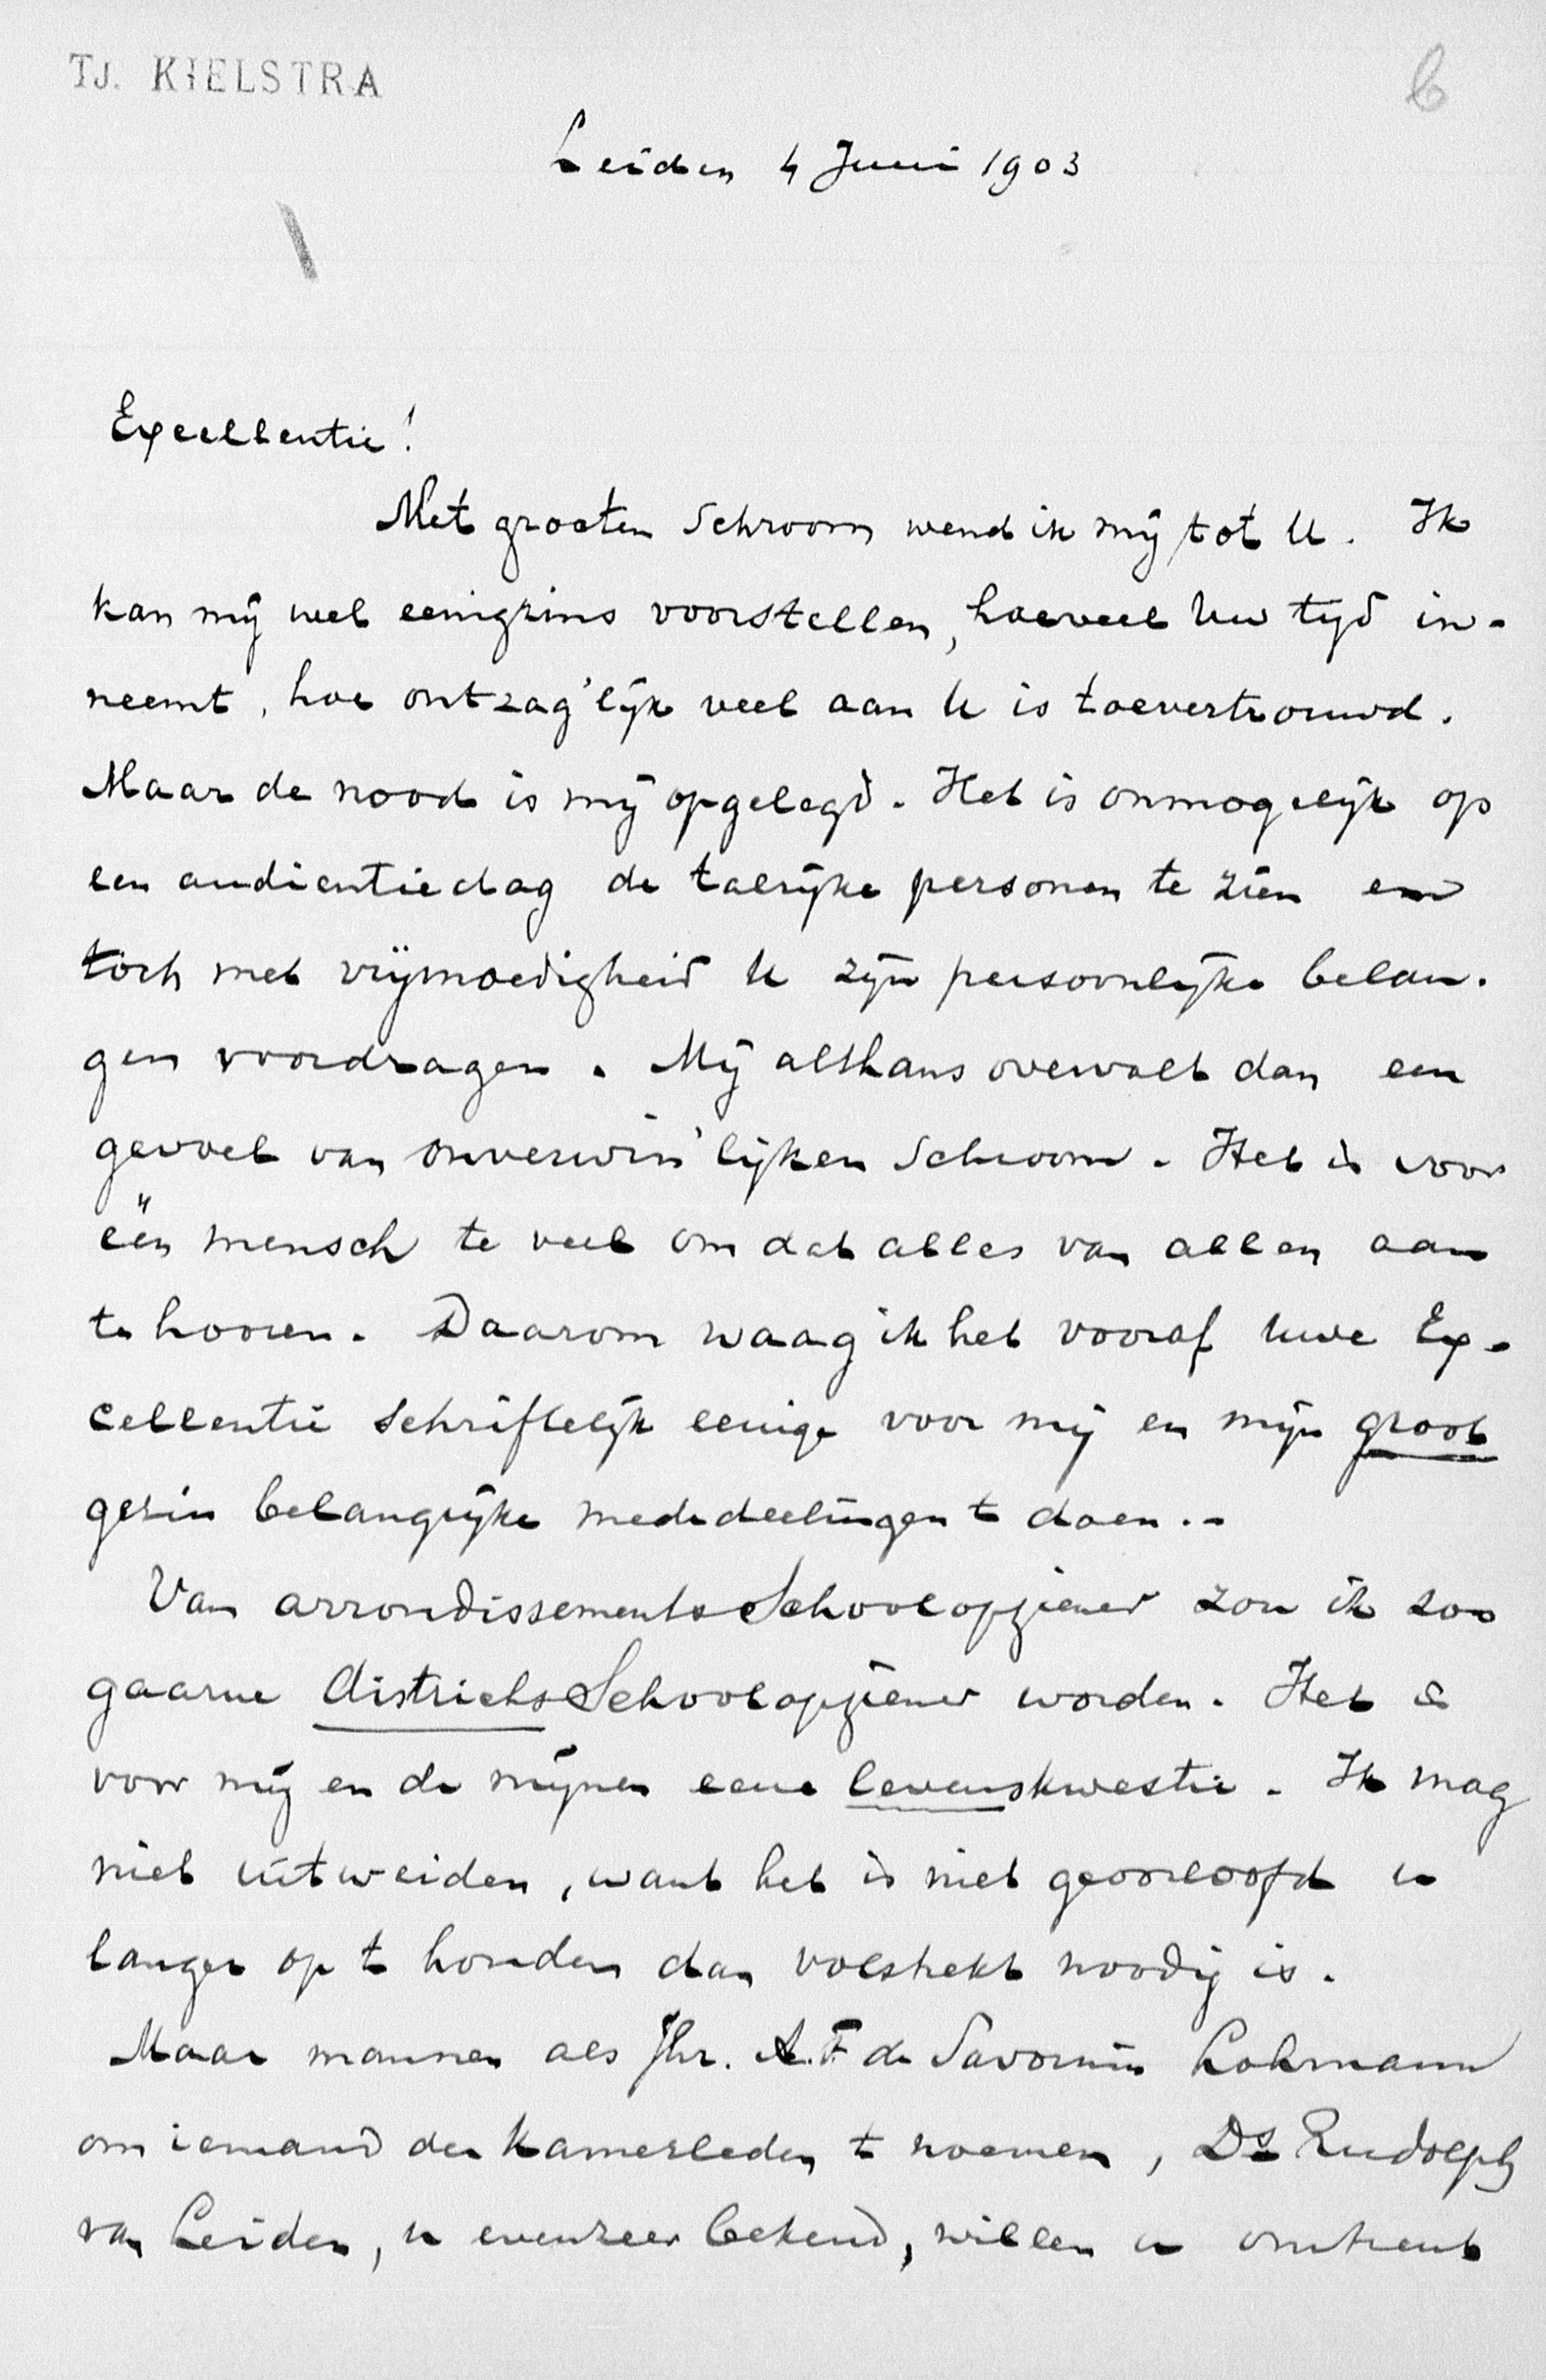 TJ. KIELSTRA
6
Leiden 4 Juni 1903
Excellentie!
Met grooten Schroom wend ik mij tot U. Ik
kan mij wel eenigzins voorstellen, hoeveel Uw tijd in-
neemt, hoe ontzag'lijk veel aan U is toevertrouwd.
Maar de nood is mij opgelegd. Het is onmogelijk op
een audientiedag de talrijke personen te zien en
toch met vrijmoedigheid U zijn persoonlijke belan-
gen voordragen. Mij althans overvalt dan een
gevoel van onverwin'lijken Schroom. Het is voor
één mensch te veel om dat alles van allen aan
te hooren. Daarom waag ik het vooraf Uwe Ex-
cellentie schriftelijk eenige voor mij en mijn groot
gezin belangrijke mededeelingen te doen.-
Van arrondissements Schoolopziener zou ik zoo
gaarne districts Schoolopziener worden. Het is
voor mij en de mijnen eene levenskwestie. Ik mag
niet uitweiden, want het is niet geoorloofd u
langer op te houden dan volstrekt noodig is.
Maar mannen als Jhr. A.F. de Savornin Lohmann
om iemand der Kamerleden te noemen, Ds Rudolph
van Leiden, u evenzeer bekend, willen u omtrent